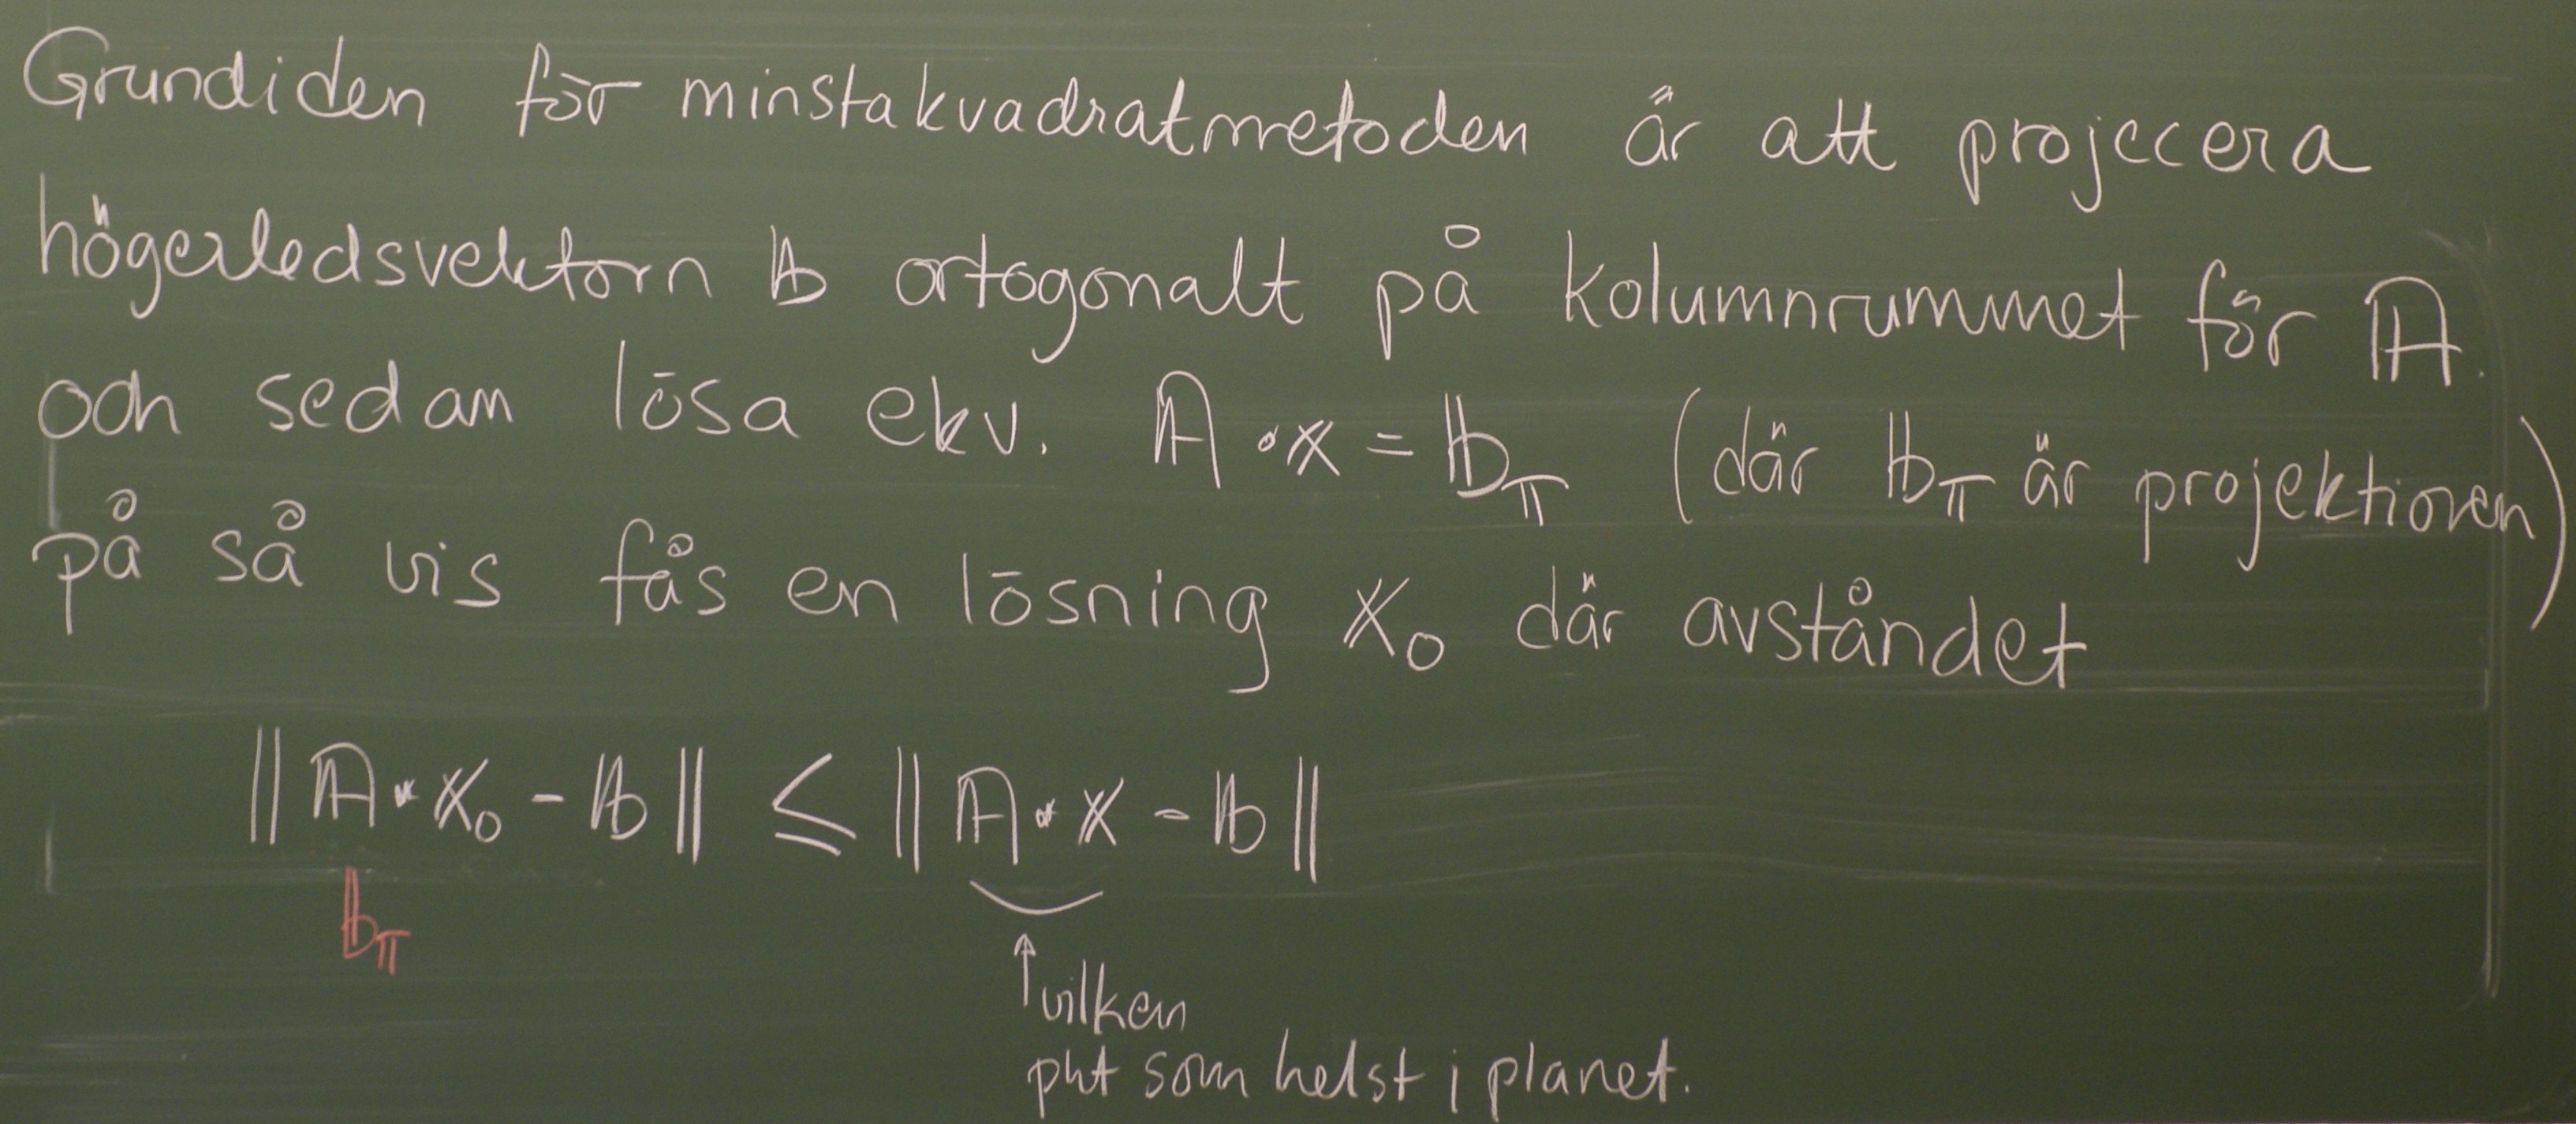 Grundiden för minstakvadratmetoden är att projecera
högerledsvektorn 𝕓 ortogonalt på kolumnrummet för 𝔸
och sedan lösa ekv. 𝔸 · 𝕩 = 𝕓π (där 𝕓π är projektionen)
på så vis fås en lösning 𝕩₀ där avståndet
‖ 𝔸 · 𝕩₀ - 𝕓 ‖ ≤ ‖ 𝔸 · 𝕩 - 𝕓 ‖
𝕓π
↑ vilken
pkt som helst i planet.